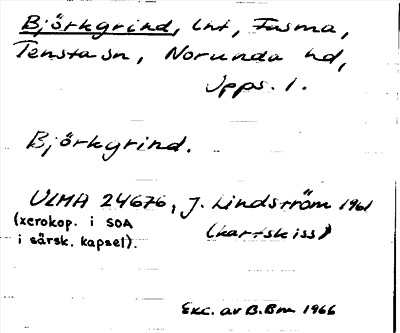 Björkgrind, lnt, Fasma,
Tensta sn, Norunda hd,
Upps. l.
Björkgrind.
ULMA 24676, J. Lindström 1961
(xerokop. i SOA (kartskiss)
i särsk. kapsel).
Exc. av B.Bm 1966